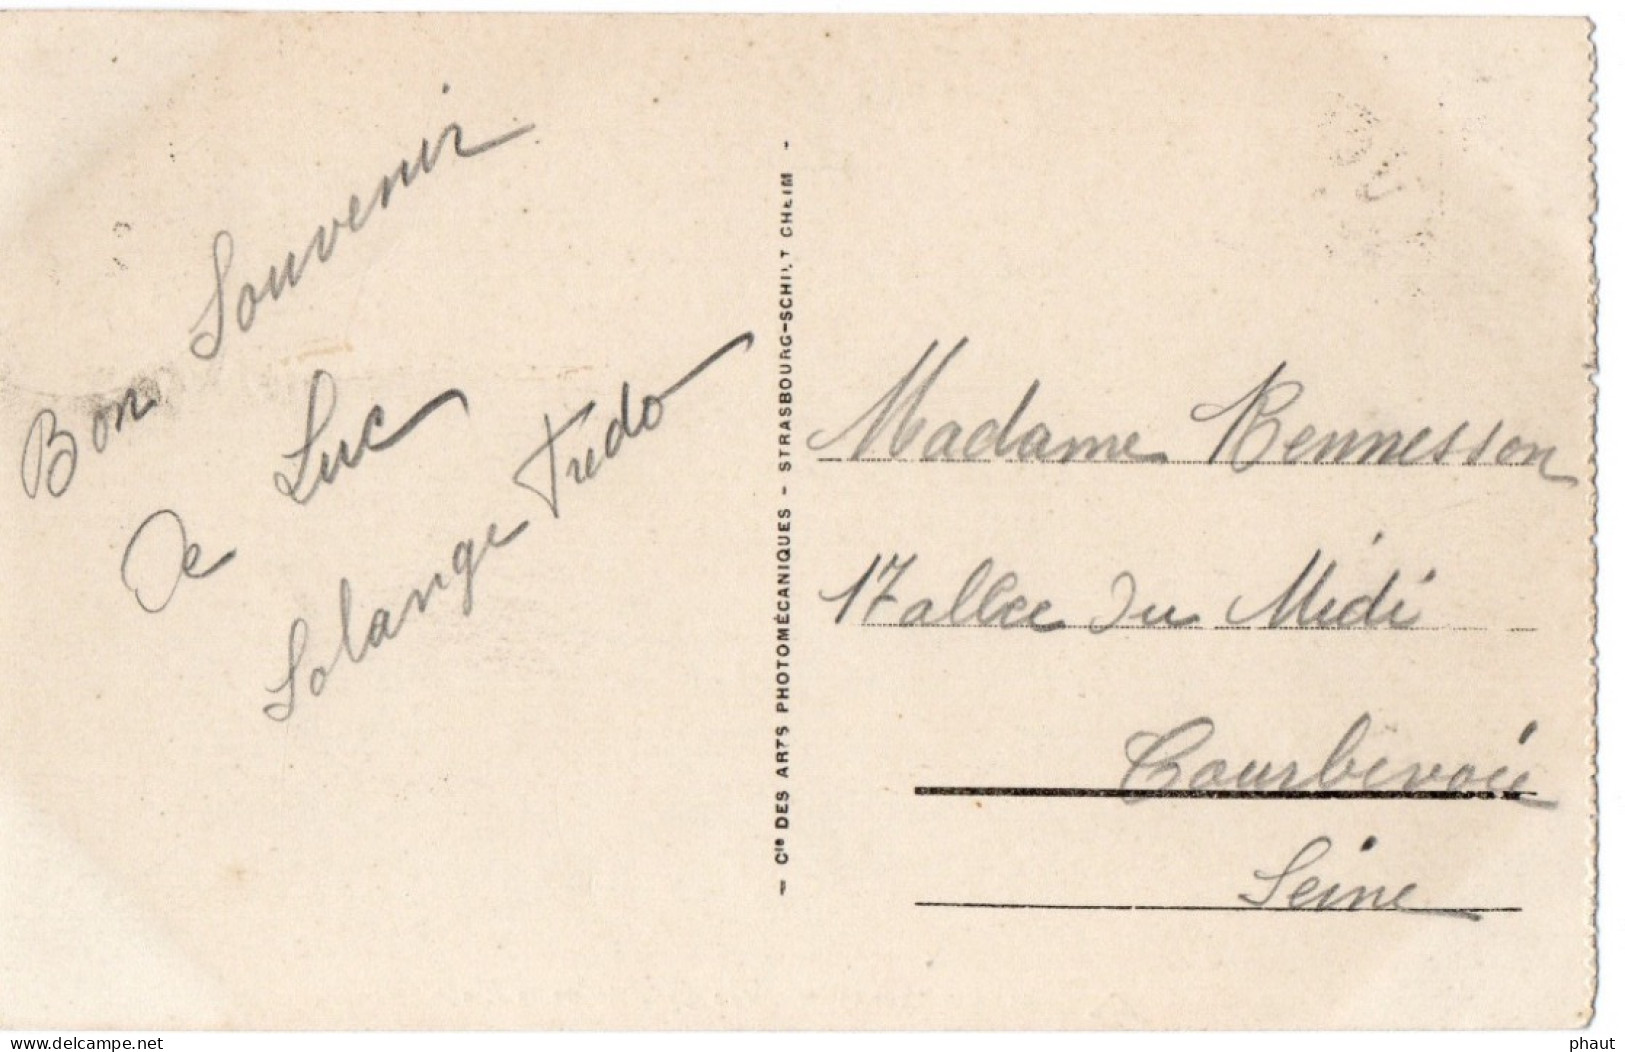 Bon Souvenir
de Luc
Solange Fredo
— Cie DES ARTS PHOTOMÉCANIQUES - STRASBOURG-SCHILTIGHEIM -
Madame Rennesson
17 allée du Midi
Courbevoie
Seine
www.delcampe.net
phaut